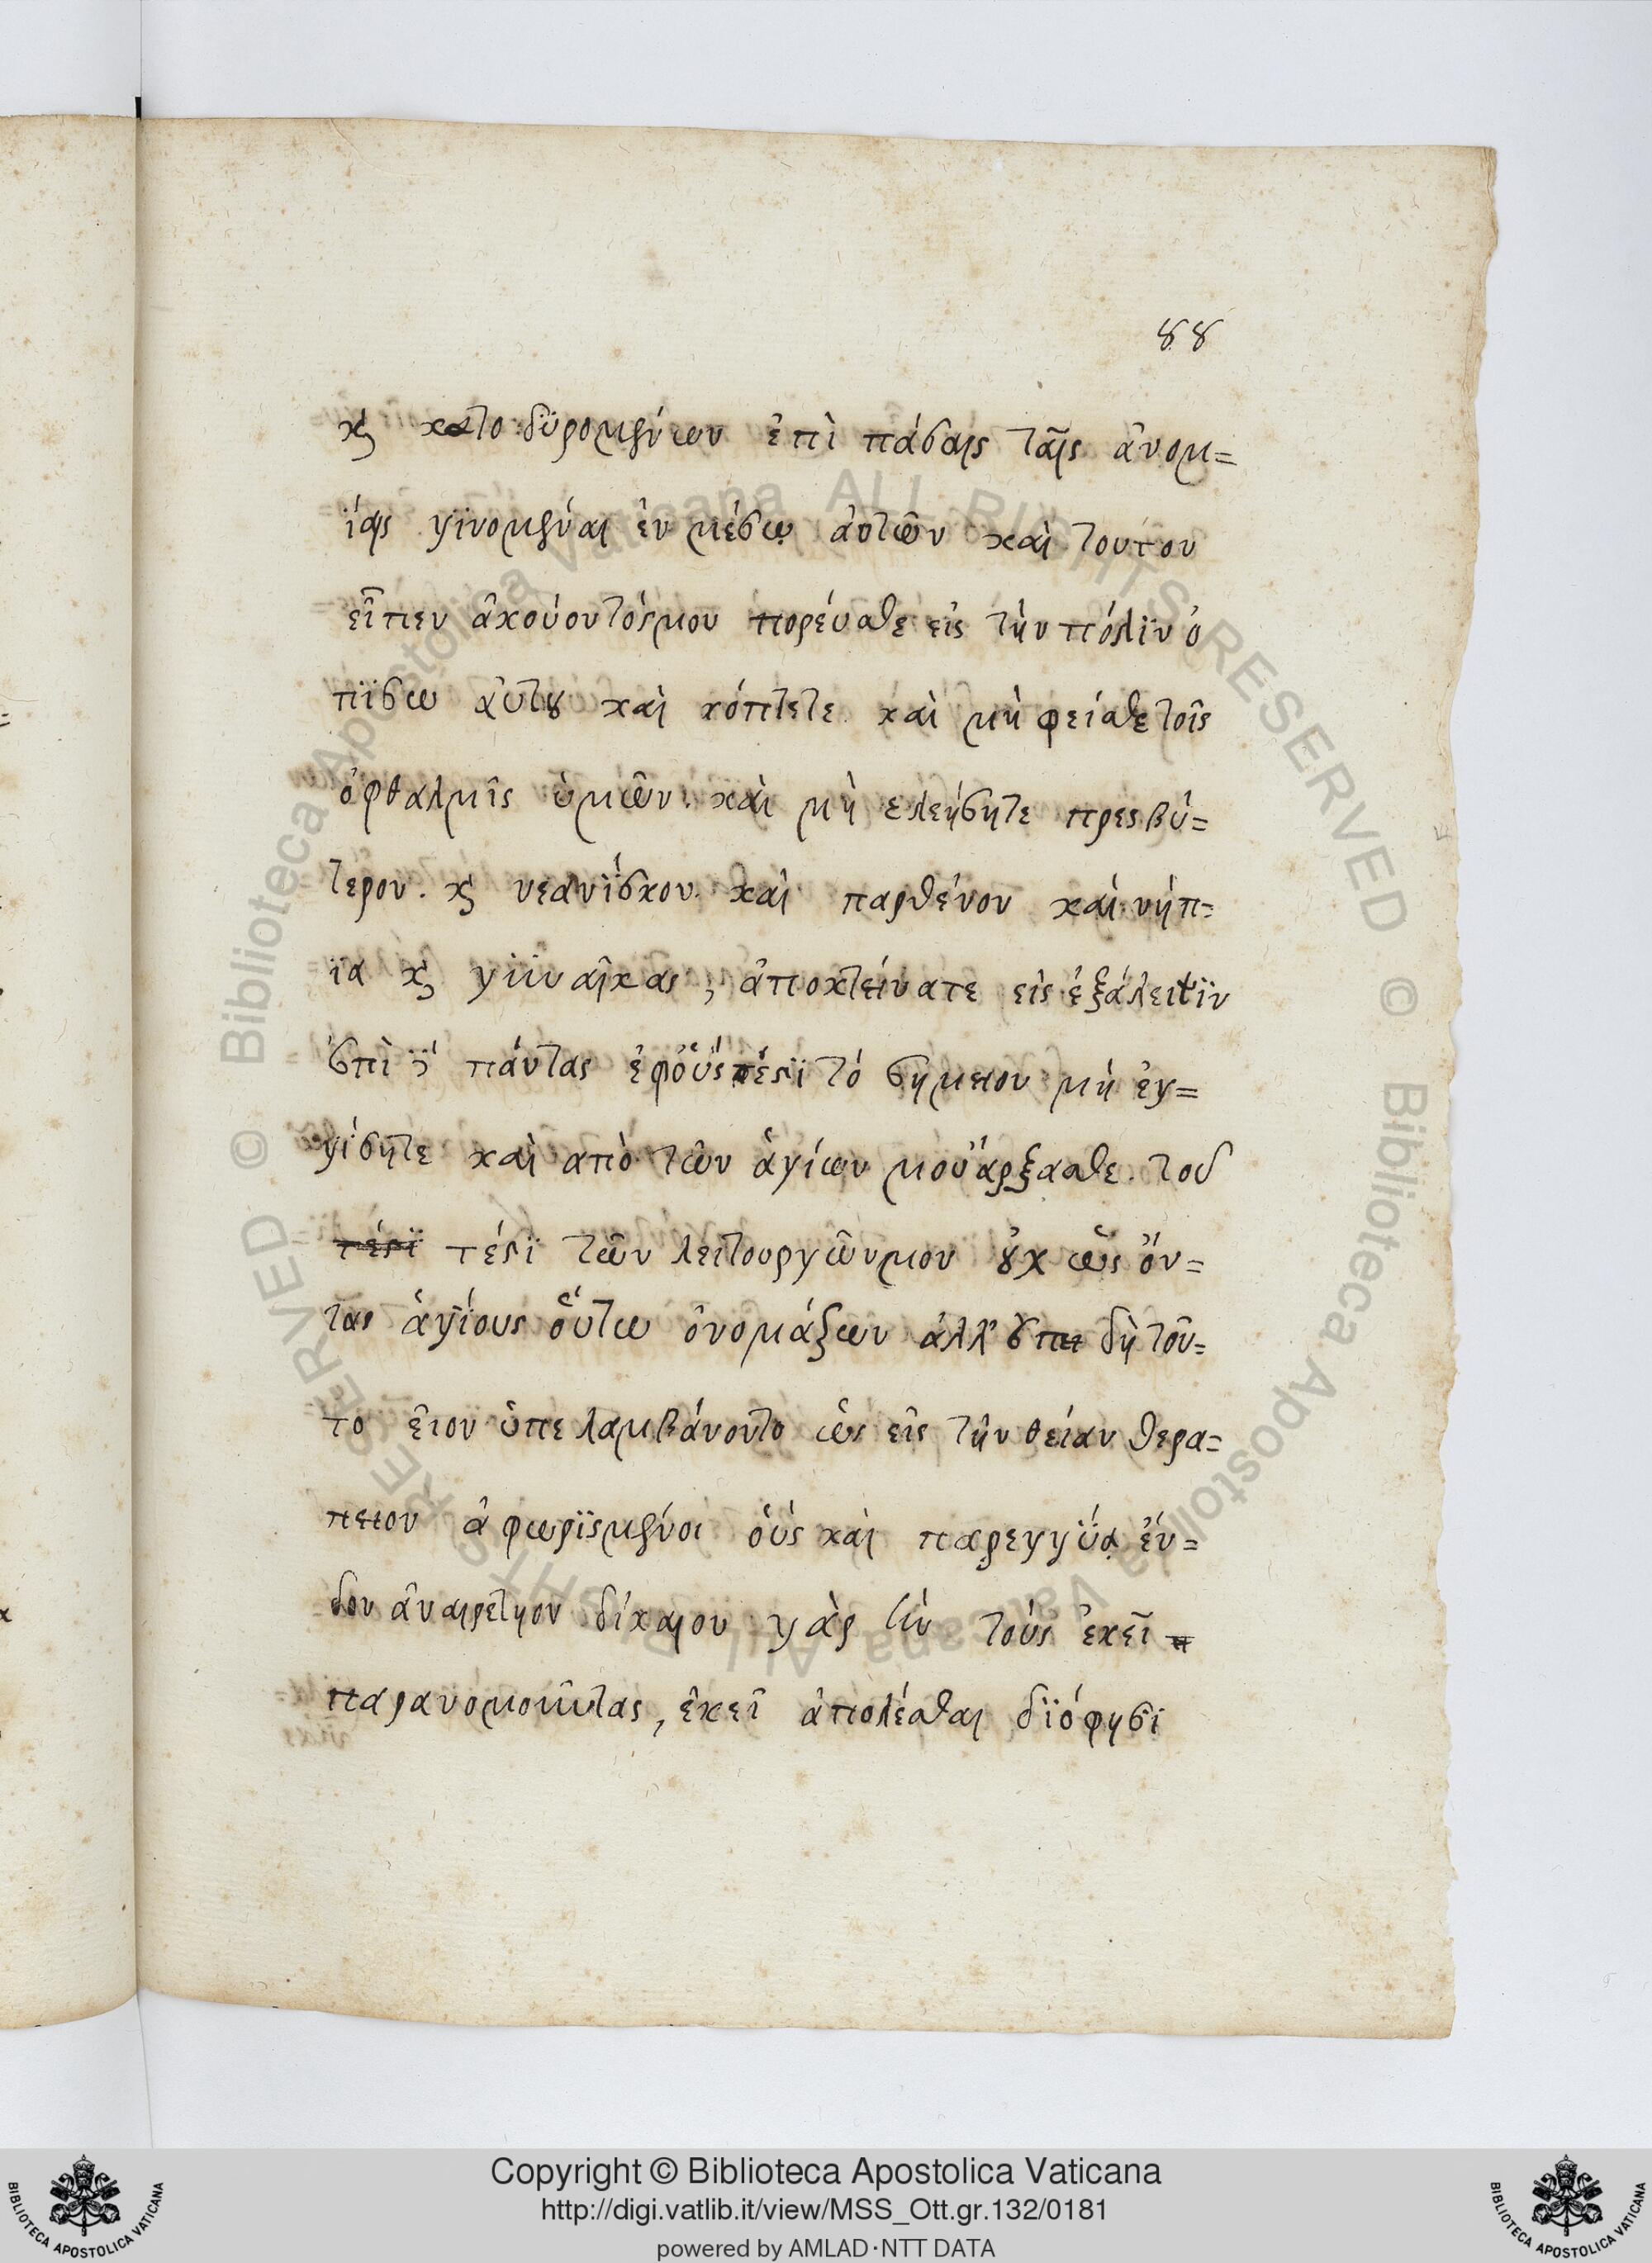 88
κ̀ κατο δϋρομένων ἐπὶ πάσαις ταῖς ἀνομ=
ίαις γϊνομέναι ἐν μέσῳ ἀυτῶν καὶ τουτου
εἶπεν ἀκούοντόςμου πορέυσθε εἰς τὴν πόλϊν ὀ
πϊσω ἀυτου καὶ κόπτετε καὶ μὴ φείσθε τοῖς
ὀφθαλμῖς ὑμῶν. καὶ μὴ ελεήσητε πρεσβύ=
τερον. κ̀ νεανίσκον. καὶ παρθένον καὶ νήπ=
ϊα κ̀ γϊυναῖκας, ἀποκτείνατε εἰς ἐξάλειψϊν
πάντας ἐφ ὅυς τὸ σημειον μὴ ἐγ=
γίσητε καὶ απὸ τῶν ἁγίων μου ἄρξασθε. του
τέςϊ τέςϊ τῶν λειτουργῶνμου ὀυχ ὡς ὄν=
τας ἁγίους ὅυτω ὀνομάζων ἀλλ' δὴ τοῦ=
το ὑπελαμβάνοντο ὡς εἰς τὴν θείαν θερα=
πειον ἀφωρϊσμένοι ὁὺς καὶ παρεγγϋᾳ ἐν=
δον ἀναιρετηον δίκαιον γὰρ τοὺς ἐκεῖ π
παρανομοῦντας, ἐκεῖ ἀπολέσθαι δϊό φησϊ
Copyright © Biblioteca Apostolica Vaticana
http://digi.vatlib.it/view/MSS_Ott.gr.132/0181
powered by AMLAD·NTT DATA
BIBLIOTECA APOSTOLICA VATICANA
BIBLIOTECA APOSTOLICA VATICANA
© Biblioteca Apostolica Vaticana ALL RIGHTS RESERVED
© Biblioteca Apostolica Vaticana ALL RIGHTS RESERVED